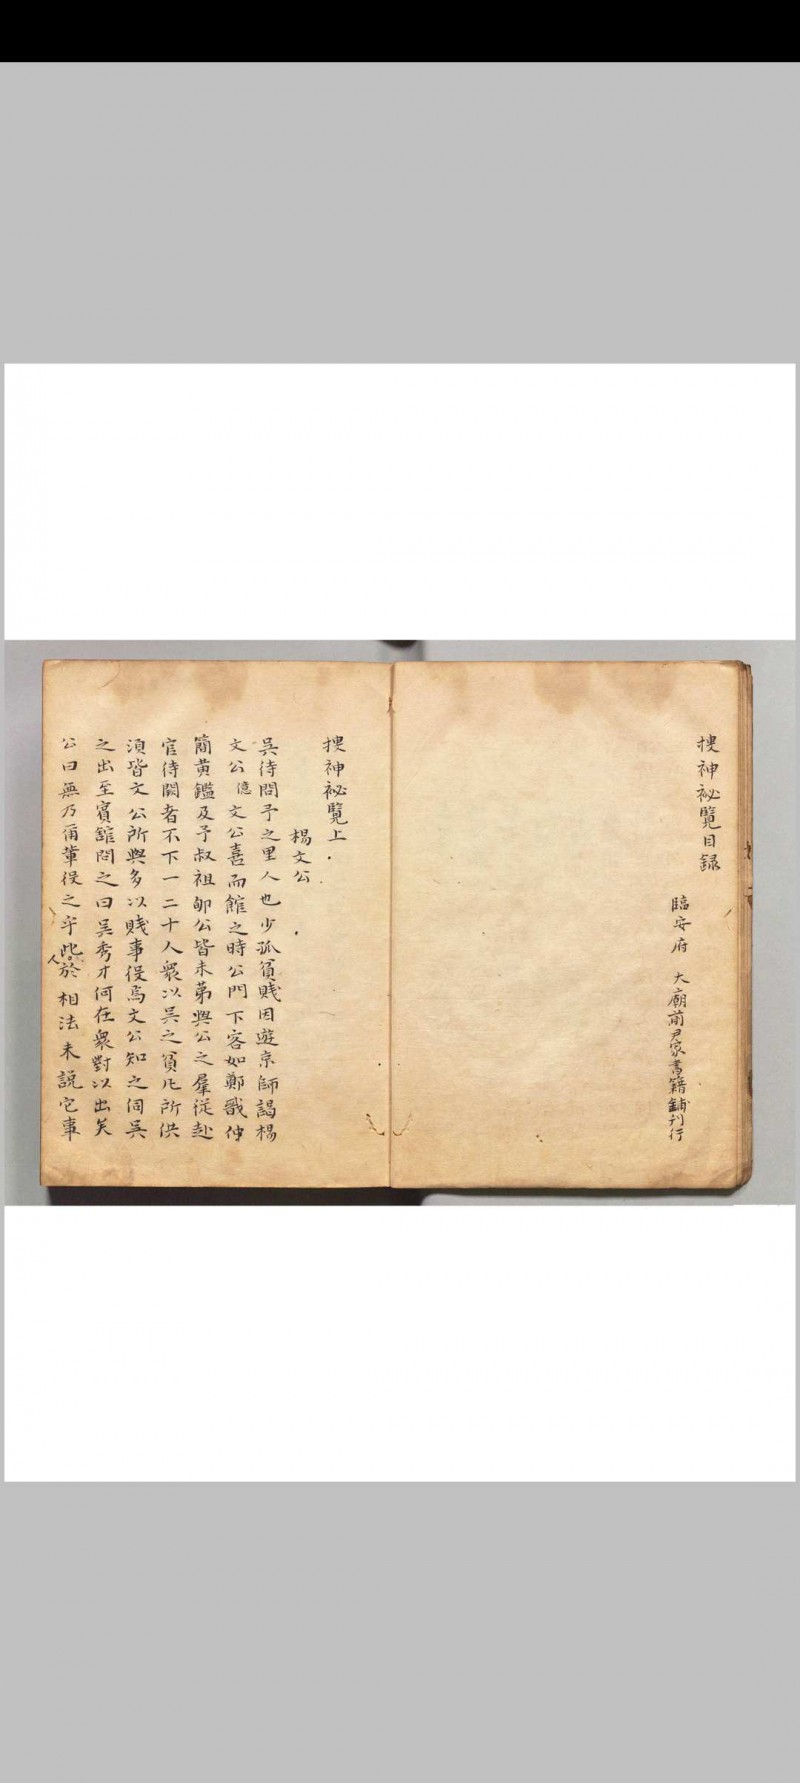 搜神祕覽目録
臨安府 大廟前尹家書籍鋪刊行
搜神祕覽上
楊文公
吳待問予之里人也少孤貧賤因遊京師謁楊
文公億文公喜而館之時公門下客如鄭戩仲
簡黃鑑及予叔祖郇公皆未第與公之羣從赴
官待闕者不下一二十人衆以吳之貧凡所供
湏皆文公所與多以賤事役焉文公知之伺吳
之出至賓舘問之曰吳秀才何在衆對以出矣
公曰無乃爾輩役之乎此人於相法未說它事